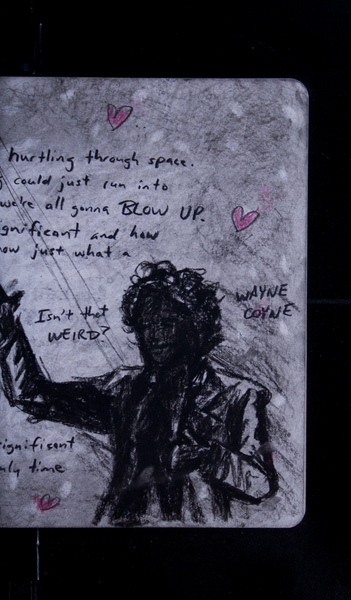 hurtling through space.
could just run into
we're all gonna BLOW UP.
significant and how
how just what a
WAYNE
COYNE
Isn't that
WEIRD?
significant
only time